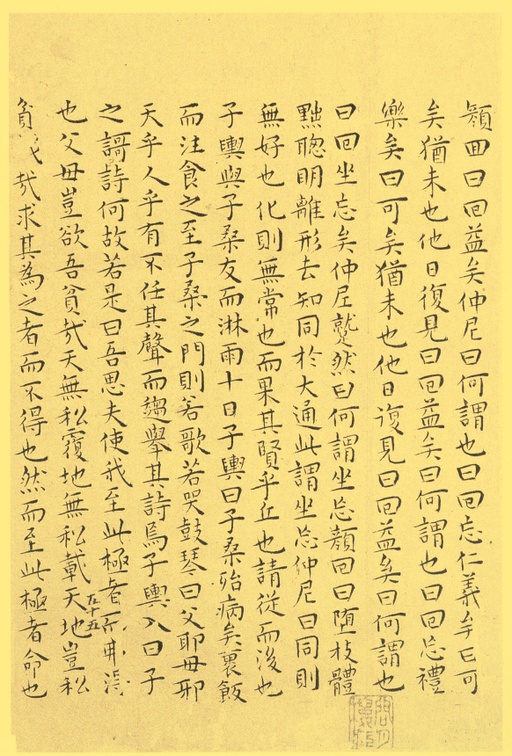 顏回曰回益矣仲尼曰何謂也曰回忘仁義矣曰可
矣猶未也他日復見曰回益矣曰何謂也曰回忘禮
樂矣曰可矣猶未也他日復見曰回益矣曰何謂也
曰回坐忘矣仲尼蹵然曰何謂坐忘顏回曰墮枝體
黜聰明離形去知同於大通此謂坐忘仲尼曰同則
無好也化則無常也而果其賢乎丘也請從而後也
子輿與子桑友而淋雨十日子輿曰子桑殆病矣裹飯
而注食之至子桑之門則若歌若哭鼓琴曰父耶母耶
天乎人乎有不任其聲而趨舉其詩焉子輿入曰子
之謌詩何故若是曰吾思夫使我至此極者而弗得
也父母豈欲吾貧哉天無私覆地無私載天地豈私
貧我哉求其為之者而不得也然而至此極者命也
五十五